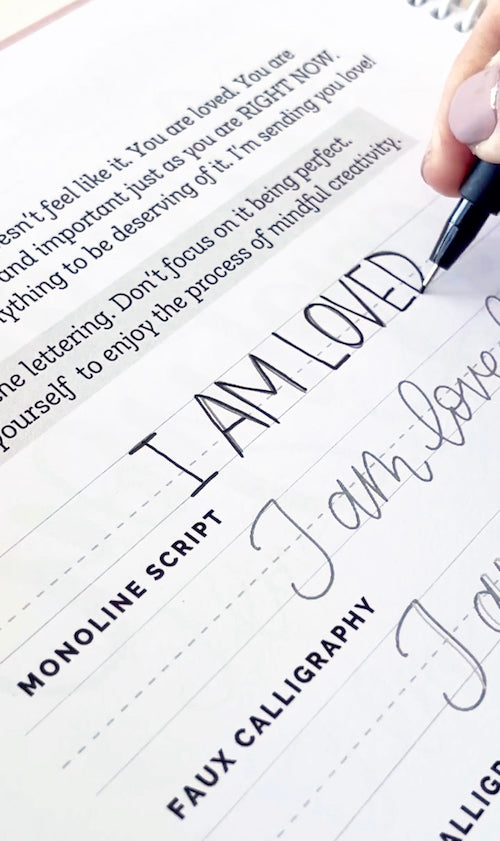 feel like it. You are loved. You are
and important just as you are RIGHT NOW.
to be deserving of it. I'm sending you love!
lettering. Don't focus on it being perfect.
yourself to enjoy the process of mindful creativity.
I AM LOVED
MONOLINE SCRIPT
I am
FAUX CALLIGRAPHY
I